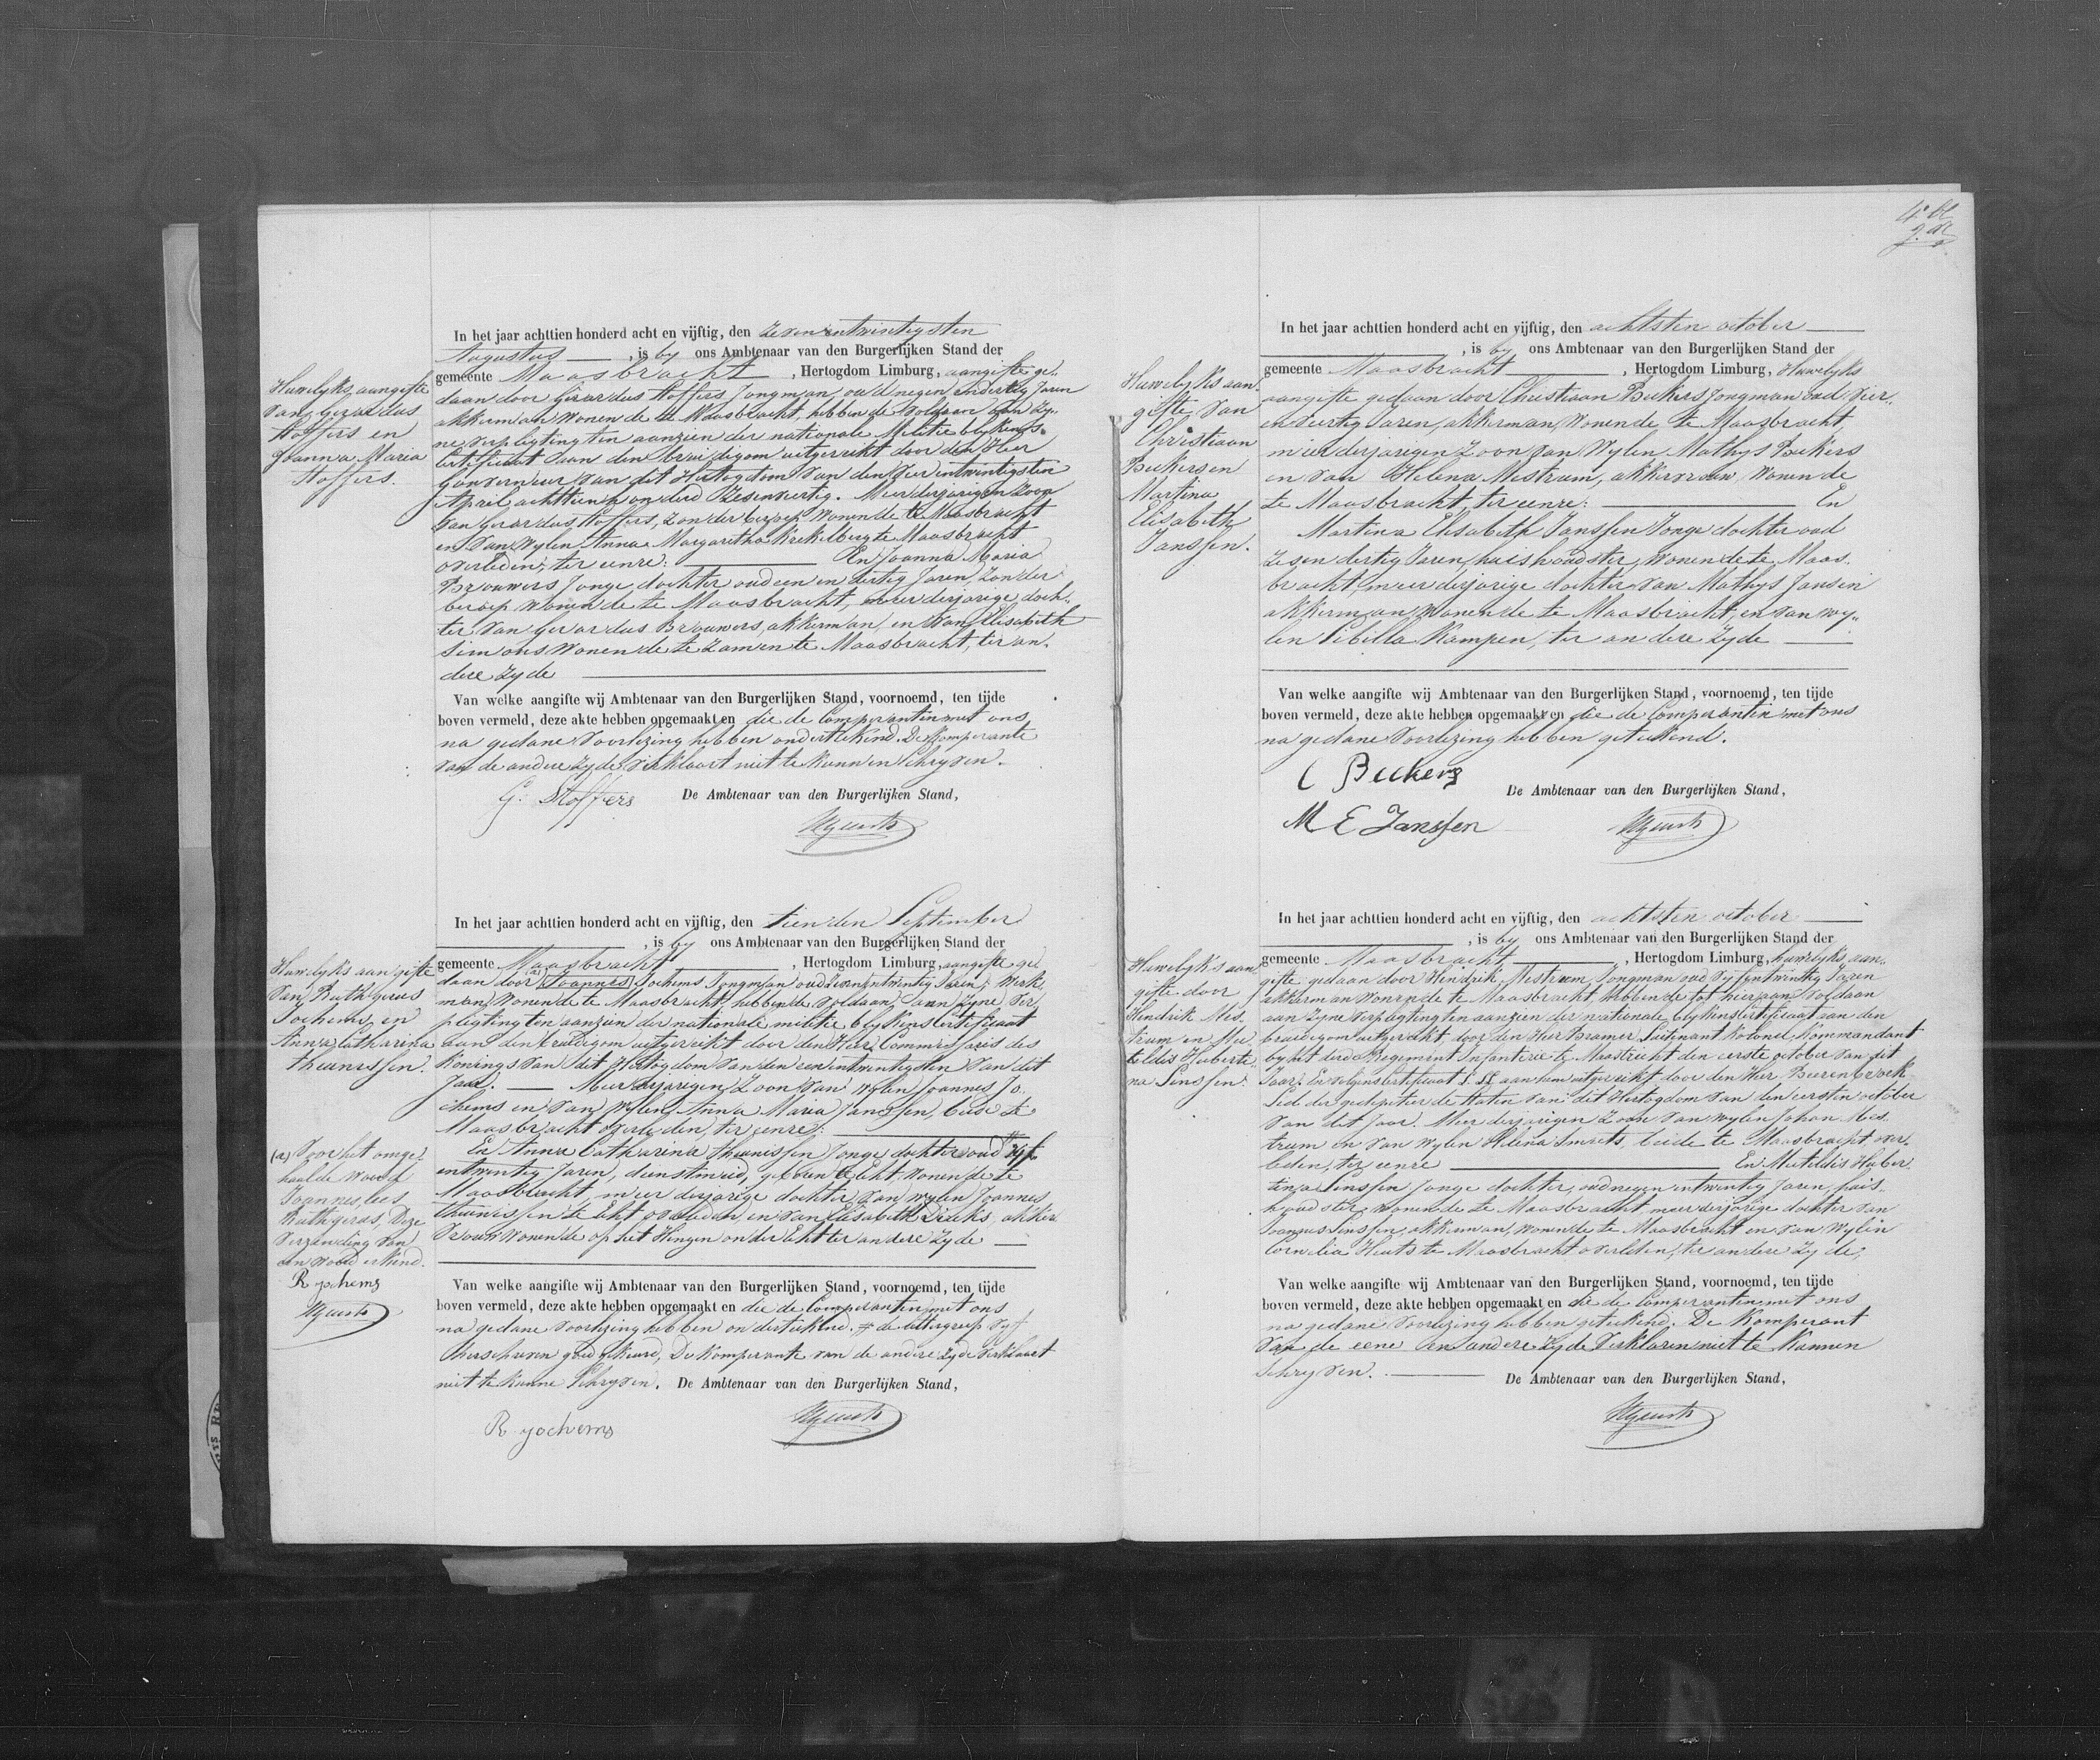 In het jaar achttien honderd acht en vijftig, den zevenentwintigsten
Augustus, is by ons Ambtenaar van den Burgerlijken Stand der
gemeente Maasbracht, Hertogdom Limburg, aangifte ge-
daan door Girardus Stoffers Jongman, oud negen en dertig Jaren
akkerman Wonende te Maasbracht, hebbende voldaan aan zy-
ne verpligting ten aanzien der nationale Militie blykens
Certificaat aan den bruidigom uitgereikt door den Heer
Gouverneur van dit Hertogdom van den vierentwintigsten
April achttienhonderd Zesenveertig. Meerderjarigen Zoon
van Gerardus Stoffers, Zonder beroep Wonende te Maasbracht
en van Wylen Anna Margaretha Krekelberg te Maasbracht
overleden, ter eenre: En Joanna Maria
Brouwers Jonge dochter oud een en dertig Jaren, Zonder
beroep Wonende te Maasbracht, meerderjarige doch-
ter van Gerardus Brouwers, akkerman, en van Elisabeth
Simons Wonende te zamen te Maasbracht, ter an-
dere zyde
Huwelyks aangifte
van Gerardus
Stoffers en
Joanna Maria
Stoffers.
Van welke aangifte wij Ambtenaar van den Burgerlijken Stand, voornoemd, ten tijde
boven vermeld, deze akte hebben opgemaakt en die de Comperanten met ons
na gedane Voorlezing hebben onderteekend. De Komperante
van de andere zyde verklaart niet te kunnen Schryven.
G. Stoffers De Ambtenaar van den Burgerlijken Stand,
In het jaar achttien honderd acht en vijftig, den tienden September
, is by ons Ambtenaar van den Burgerlijken Stand der
gemeente Maasbracht, Hertogdom Limburg, aangifte ge-
daan door (a) Joannes Jochems Jongman oud Zevenentwintig Jaren, Werk-
man, Wonende te Maasbracht, hebbende voldaan aan Zyne Ver-
pligting ten aanzien der nationale militie blykens Certificaat
aan den bruidigom uitgereikt door den Heer Commissaris des
Konings van dit Hertogdom van den eenentwintigsten van dit
Jaar. Meerderjarigen Zoon van Wylen Joannes Jo-
chems en van Wylen Anna Maria Janssen, beide te
Maasbracht overleden, ter eenre:
En Anna Catharina Theunissen Jonge dochter oud vyf
entwintig Jaren, dienstmeid, geboren te Echt, Wonende te
Maasbracht, meerderjarige dochter van Wylen Joannes
Theunissen te Echt overleden, en van Elisabeth Dircks, akker-
Vrouw Wonende op het Hingen onder Echt ter andere Zyde
Huwelyks aangifte
van Ruthgerus
Jochems, en
Anna Catharina
Theunissen.
(a) Voor het omge-
haalde Woord
Joannes, lees
Ruthgerus, Deze
verzending van
een woord erkend.
R jochems
Van welke aangifte wij Ambtenaar van den Burgerlijken Stand, voornoemd, ten tijde
boven vermeld, deze akte hebben opgemaakt en die de Comperanten met ons
na gedane Voorlezing hebben onderteekend. # de lettergreep vyf
herschreven goedgekeurd, De Komperante van de andere zyde verklaart
niet te kunne Schryven. De Ambtenaar van den Burgerlijken Stand,
R jochems
In het jaar achttien honderd acht en vijftig, den achtsten october
, is by ons Ambtenaar van den Burgerlijken Stand der
gemeente Maasbracht, Hertogdom Limburg, Huwelyks
aangifte gedaan door Christiaan Beckers Jongman oud vier-
en veertig Jaren, akkerman, Wonende te Maasbracht,
meerderjarigen Zoon van Wylen Mathys Beckers
en van Helena Mestrum, akkervrouw, Wonende
te Maasbracht, ter eenre: En
Martina Elisabeth Janssen Jonge dochter oud
Zesendertig Jaren, huishoudster, Wonende te Maas-
bracht, meerderjarige dochter van Mathys Jansen
akkerman, Wonende te Maasbracht, en van wy-
len Sibilla Kampen, ter andere Zyde
Huwelyks aan-
gifte van
Christiaan
Beckers en
Martina
Elisabeth
Janssen.
Van welke aangifte wij Ambtenaar van den Burgerlijken Stand, voornoemd, ten tijde
boven vermeld, deze akte hebben opgemaakt en die de Comperanten met ons
na gedane Voorlezing hebben geteekend.
C Beckers De Ambtenaar van den Burgerlijken Stand,
M E Janssen
In het jaar achttien honderd acht en vijftig, den achtsten october
, is by ons Ambtenaar van den Burgerlijken Stand der
gemeente Maasbracht, Hertogdom Limburg, huwelyks aan-
gifte gedaan door Hindrik Mestrum, Jongman oud vyfentwintig Jaren
akkerman Wonende te Maasbracht, hebbende tot hieraan voldaan
aan Zyne Verpligting ten aanzien der nationale blykens Certificaat aan den
bruidegom uitgereikt, door den Heer Bramer, Luitenant Kolonel Kommandant
by het derde Regement Infanterie te Maastricht den eerste october van dit
Jaar. En volgens Certificaat aan hem uitgereikt door den Heer Beerenbroek
Lid der gedeputeerde Staten van dit Hertogdom van den eersten october
van dit Jaar. Meerderjarigen Zoon van wylen Johan Mes-
trum en van Wylen Helena Smeets, beide te Maasbracht over-
leden, ter eenre En Mechtildis Huber-
tina Linssen Jonge dochter, oud negen entwintig Jaren, huis-
houdster, Wonende te Maasbracht meerderjarige dochter van
Linssen, akkerman, Wonende te Maasbracht en van Wylen
Cornelia te Maasbracht overleden, ter andere Zyde,
Huwelyks aan-
gifte door
Hindrik Mes-
trum en Me-
tildis Huberti-
na Linssen.
Van welke aangifte wij Ambtenaar van den Burgerlijken Stand, voornoemd, ten tijde
boven vermeld, deze akte hebben opgemaakt en die de Comperanten met ons
na gedane Voorlezing hebben geteekend. De Komperant
van de eene en andere Zyde Verklaren niet te Kunnen
Schryven. De Ambtenaar van den Burgerlijken Stand,